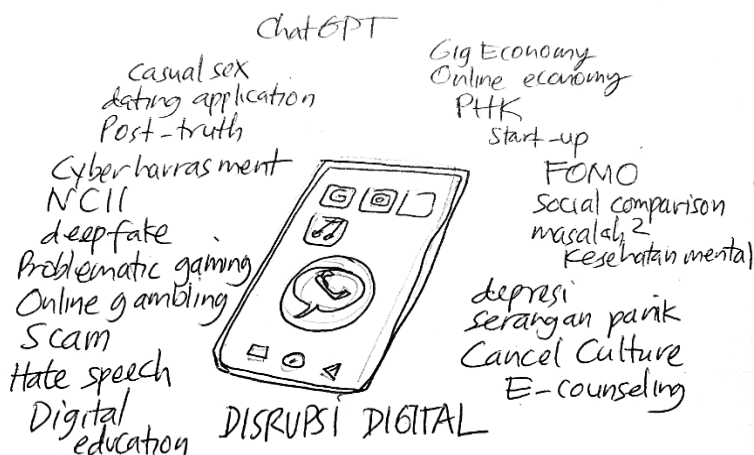 ChatGPT
casual sex
dating application
Post-truth
Cyberharrasment
NCII
deepfake
Problematic gaming
Online gambling
Scam
Hate speech
Digital
education
Gig Economy
Online economy
PHK
Start-up
FOMO
Social comparison
masalah2
Kesehatan mental
depresi
serangan panik
Cancel Culture
E-counseling
G
DISRUPSI DIGITAL